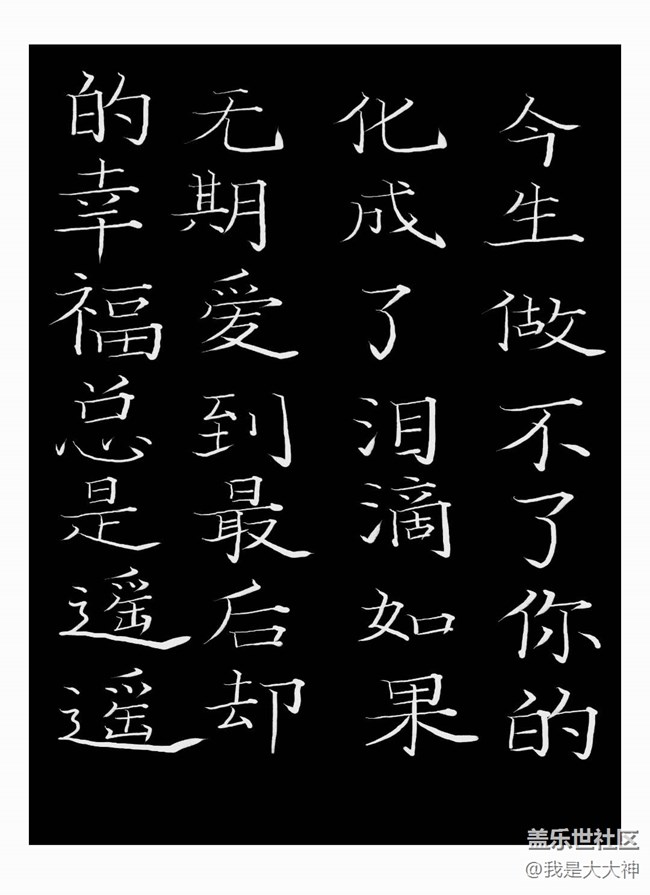 今生做不了你的
化成了泪滴如果
无期爱到最后却
的幸福总是遥遥
盖乐世社区
@我是大大神